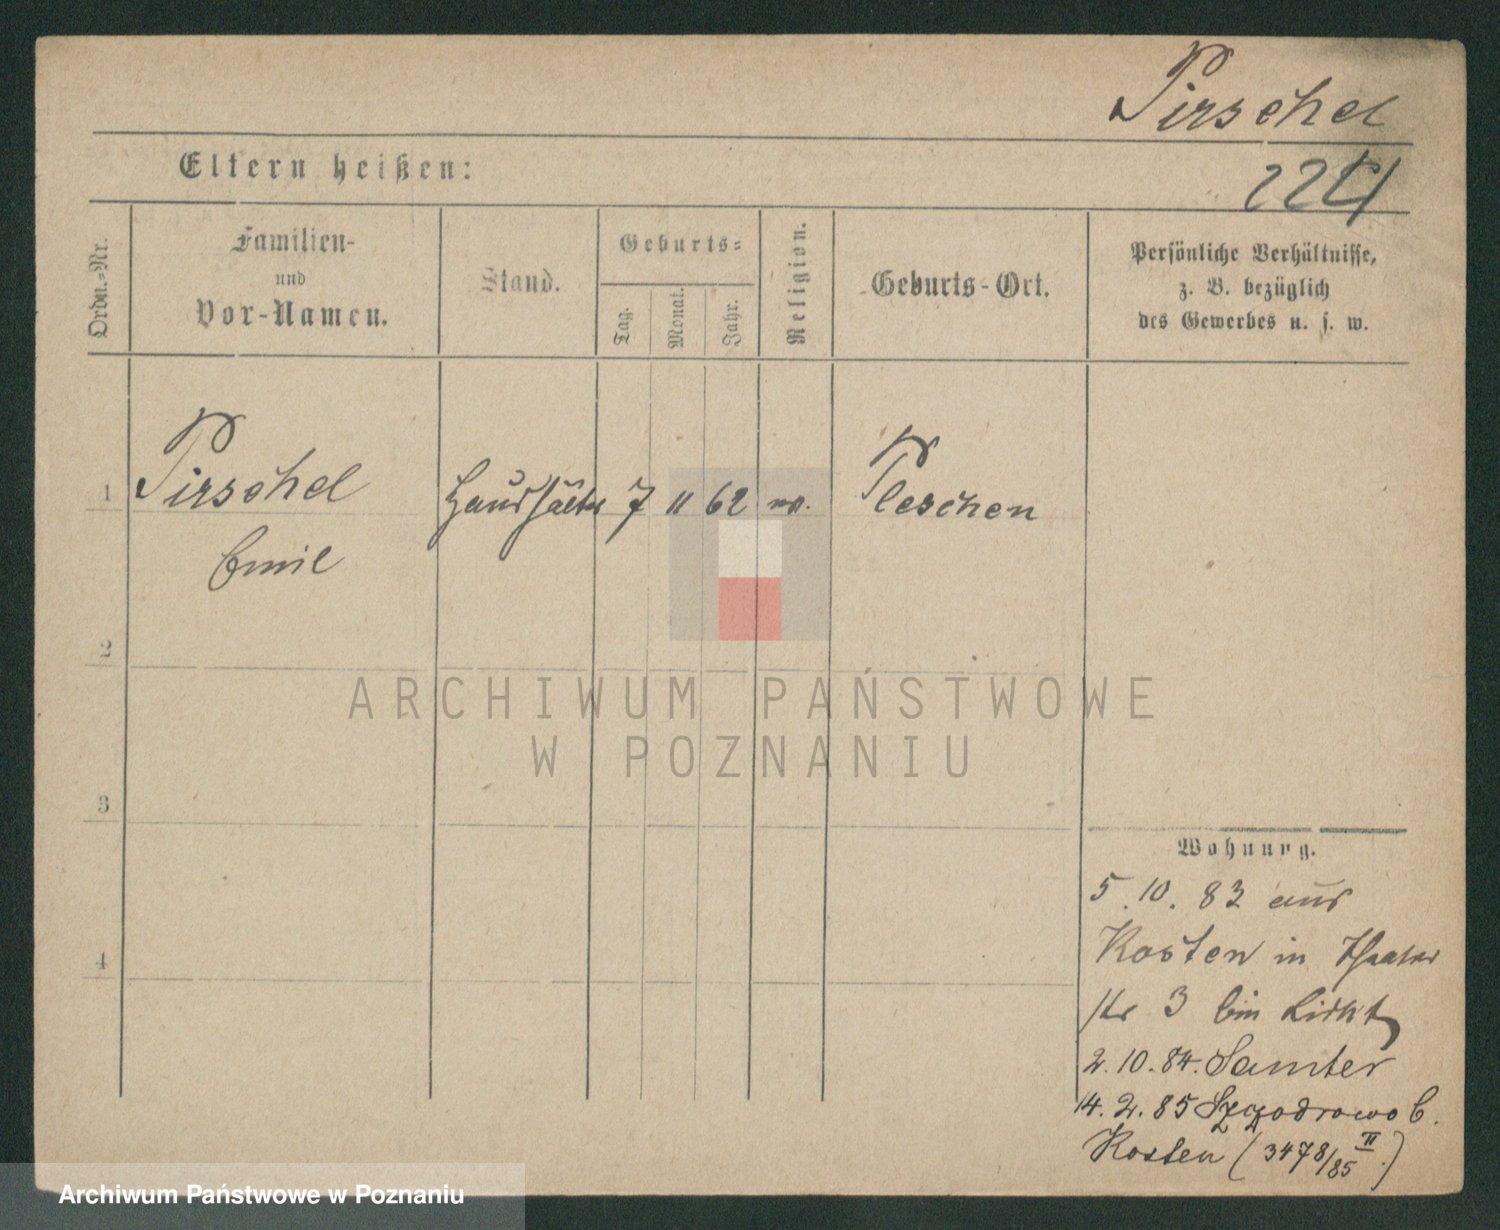 Pirschel
Eltern heißen:
2254
Ordn.-Nr.
Familien-
und
Vor-Namen.
Stand.
Geburts-
Tag.
Monat.
Jahr.
Religion.
Geburts-Ort.
Persönliche Verhältnisse,
z. B. bezüglich
des Gewerbes u. s. w.
1
Pirschel
Emil
Haushälter
7
11
62
Pleschen
2
3
4
Wohnung.
5. 10. 83 aus
Kosten in Theater
str 3 bei
2. 10. 84. Samter
14. 2. 85 Szczodrowo b.
Kosten (3478/85 II.)
ARCHIWUM PAŃSTWOWE
W POZNANIU
Archiwum Państwowe w Poznaniu